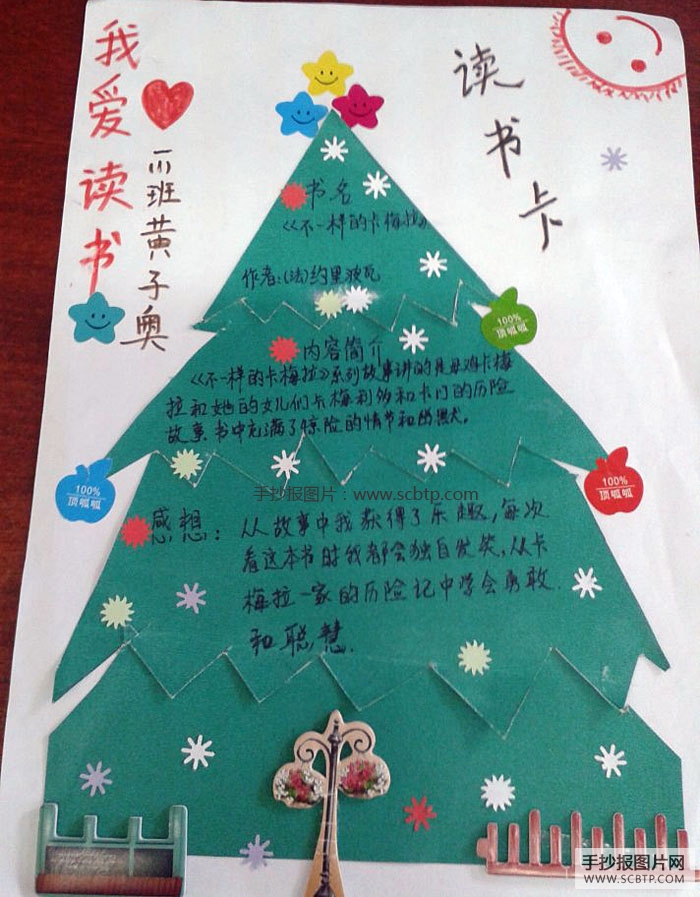 我爱读书
一(1)班黄子奥
读书卡
书名
《不一样的卡梅拉》
作者:(法)约里波瓦
100%
顶呱呱
内容简介
《不一样的卡梅拉》系列故事讲的是母鸡卡梅
拉和她的女儿们卡梅利多和卡门的历险
故事.书中充满了惊险的情节和幽默.
100%
顶呱呱
100%
顶呱呱
手抄报图片:www.scbtp.com
感想:
从故事中我获得了乐趣,每次
看这本书时我都会独自发笑,从卡
梅拉一家的历险记中学会勇敢
和聪慧.
手抄报图片网
WWW.SCBTP.COM